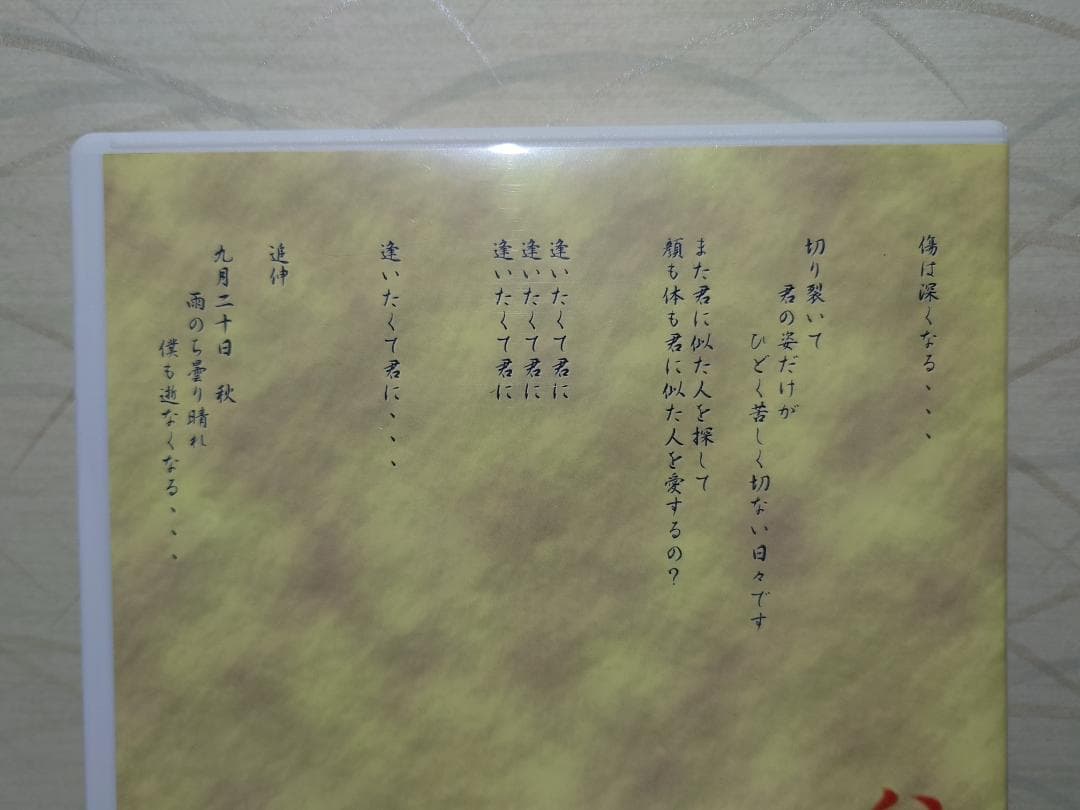 傷は深くなる、、、
切り裂いて
君の姿だけが
ひどく苦しく切ない日々です
また君に似た人を探して
顔も体も君に似た人を愛するの？
逢いたくて君に
逢いたくて君に
逢いたくて君に
逢いたくて君に、、、
追伸
九月二十日 秋
雨のち曇り晴れ
僕も逝なくなる、、、